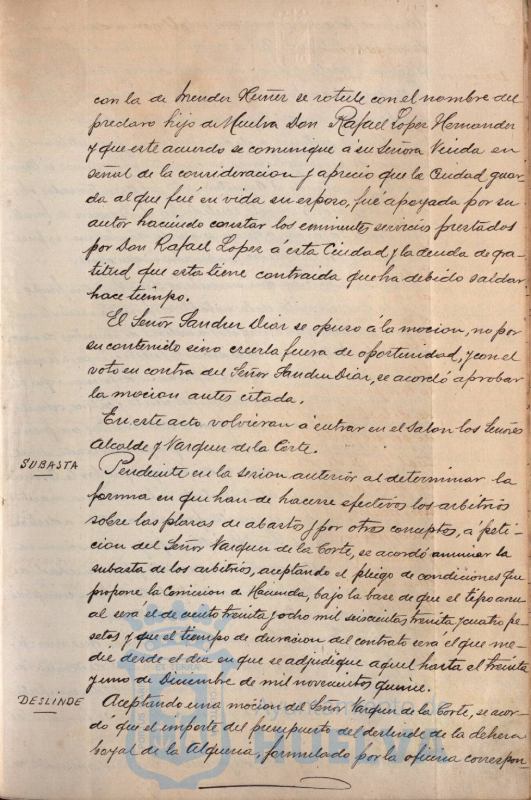 con la de Mendez Nuñez se rotule con el nombre del
preclaro hijo de Huelva Don Rafael Lopez Hernandez
y que este acuerdo se comunique á su Señora Viuda en
señal de la consideracion y aprecio que la Ciudad guar-
da al que fué en vida su esposo, fué apoyada por su
autor haciendo constar los eminentes servicios prestados
por Don Rafael Lopez á esta Ciudad y la deuda de gra-
titud que esta tiene contraida que ha debido saldar
hace tiempo.
El Señor Sanchez Diaz se opuso á la mocion, no por
su contenido sino creerla fuera de oportunidad, y con el
voto en contra del Señor Sanchez Diaz, se acordó aprobar
la mocion antes citada.
En este acto volvieron á entrar en el Salon los Señores
Alcalde y Vazquez de la Corte.
SUBASTA
Pendiente en la sesion anterior al determinar la
forma en que han de hacerse efectivos los arbitrios
sobre las plazas de abastos y por otros conceptos, á peti-
cion del Señor Vazquez de la Corte, se acordó anunciar la
subasta de los arbitrios, aceptando el pliego de condiciones que
propone la Comision de Hacienda, bajo la base de que el tipo anu-
al será el de ciento treinta y ocho mil seiscientas treinta y cuatro pe-
setas y que el tiempo de duracion del contrato será el que me-
die desde el dia en que se adjudique aquel hasta el treinta
y uno de Diciembre de mil novecientos quince.
DESLINDE
Aceptando una mocion del Señor Vazquez de la Corte, se acor-
dó que el importe del presupuesto del deslinde de la dehesa
boyal de la Alqueria, formulado por la oficina correspon-